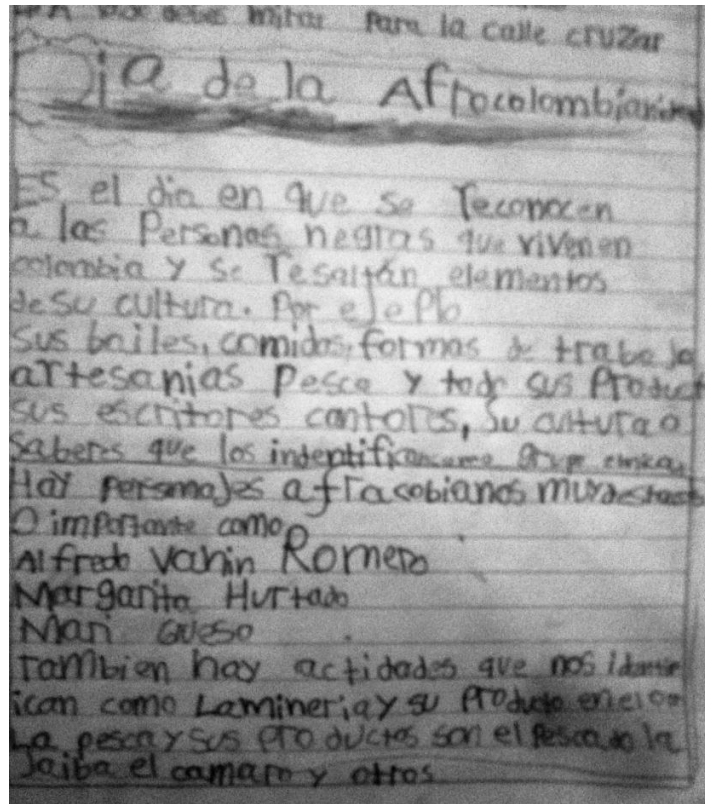 debes mirar para la calle cruzar
Dia de la Afrocolombianidad
ES el dia en que se reconocen
a las Personas negras que viven en
colombia y se resaltán elementos
de su cultura. Por ejeplo
sus bailes, comidas, formas de trabajo
artesanias pesca y todo sus Product
sus escritores cantores, su cultura o
saberes que los indentifican como grupo
Hay personajes afracobianos muy
O importante como
Alfredo Vanin Romero
Margarita Hurtado
Mari Gueso
tambien hay actidades que nos identi
ican como La mineria y su Producto en el
La pesca y sus productos son el pescado la
Jaiba el camaro y otros